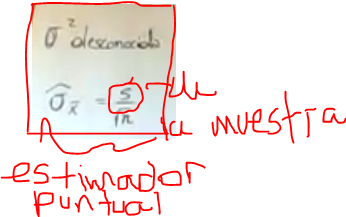 σ² desconocida
σ̂x̄ = s/√n
de la muestra
estimador
puntual